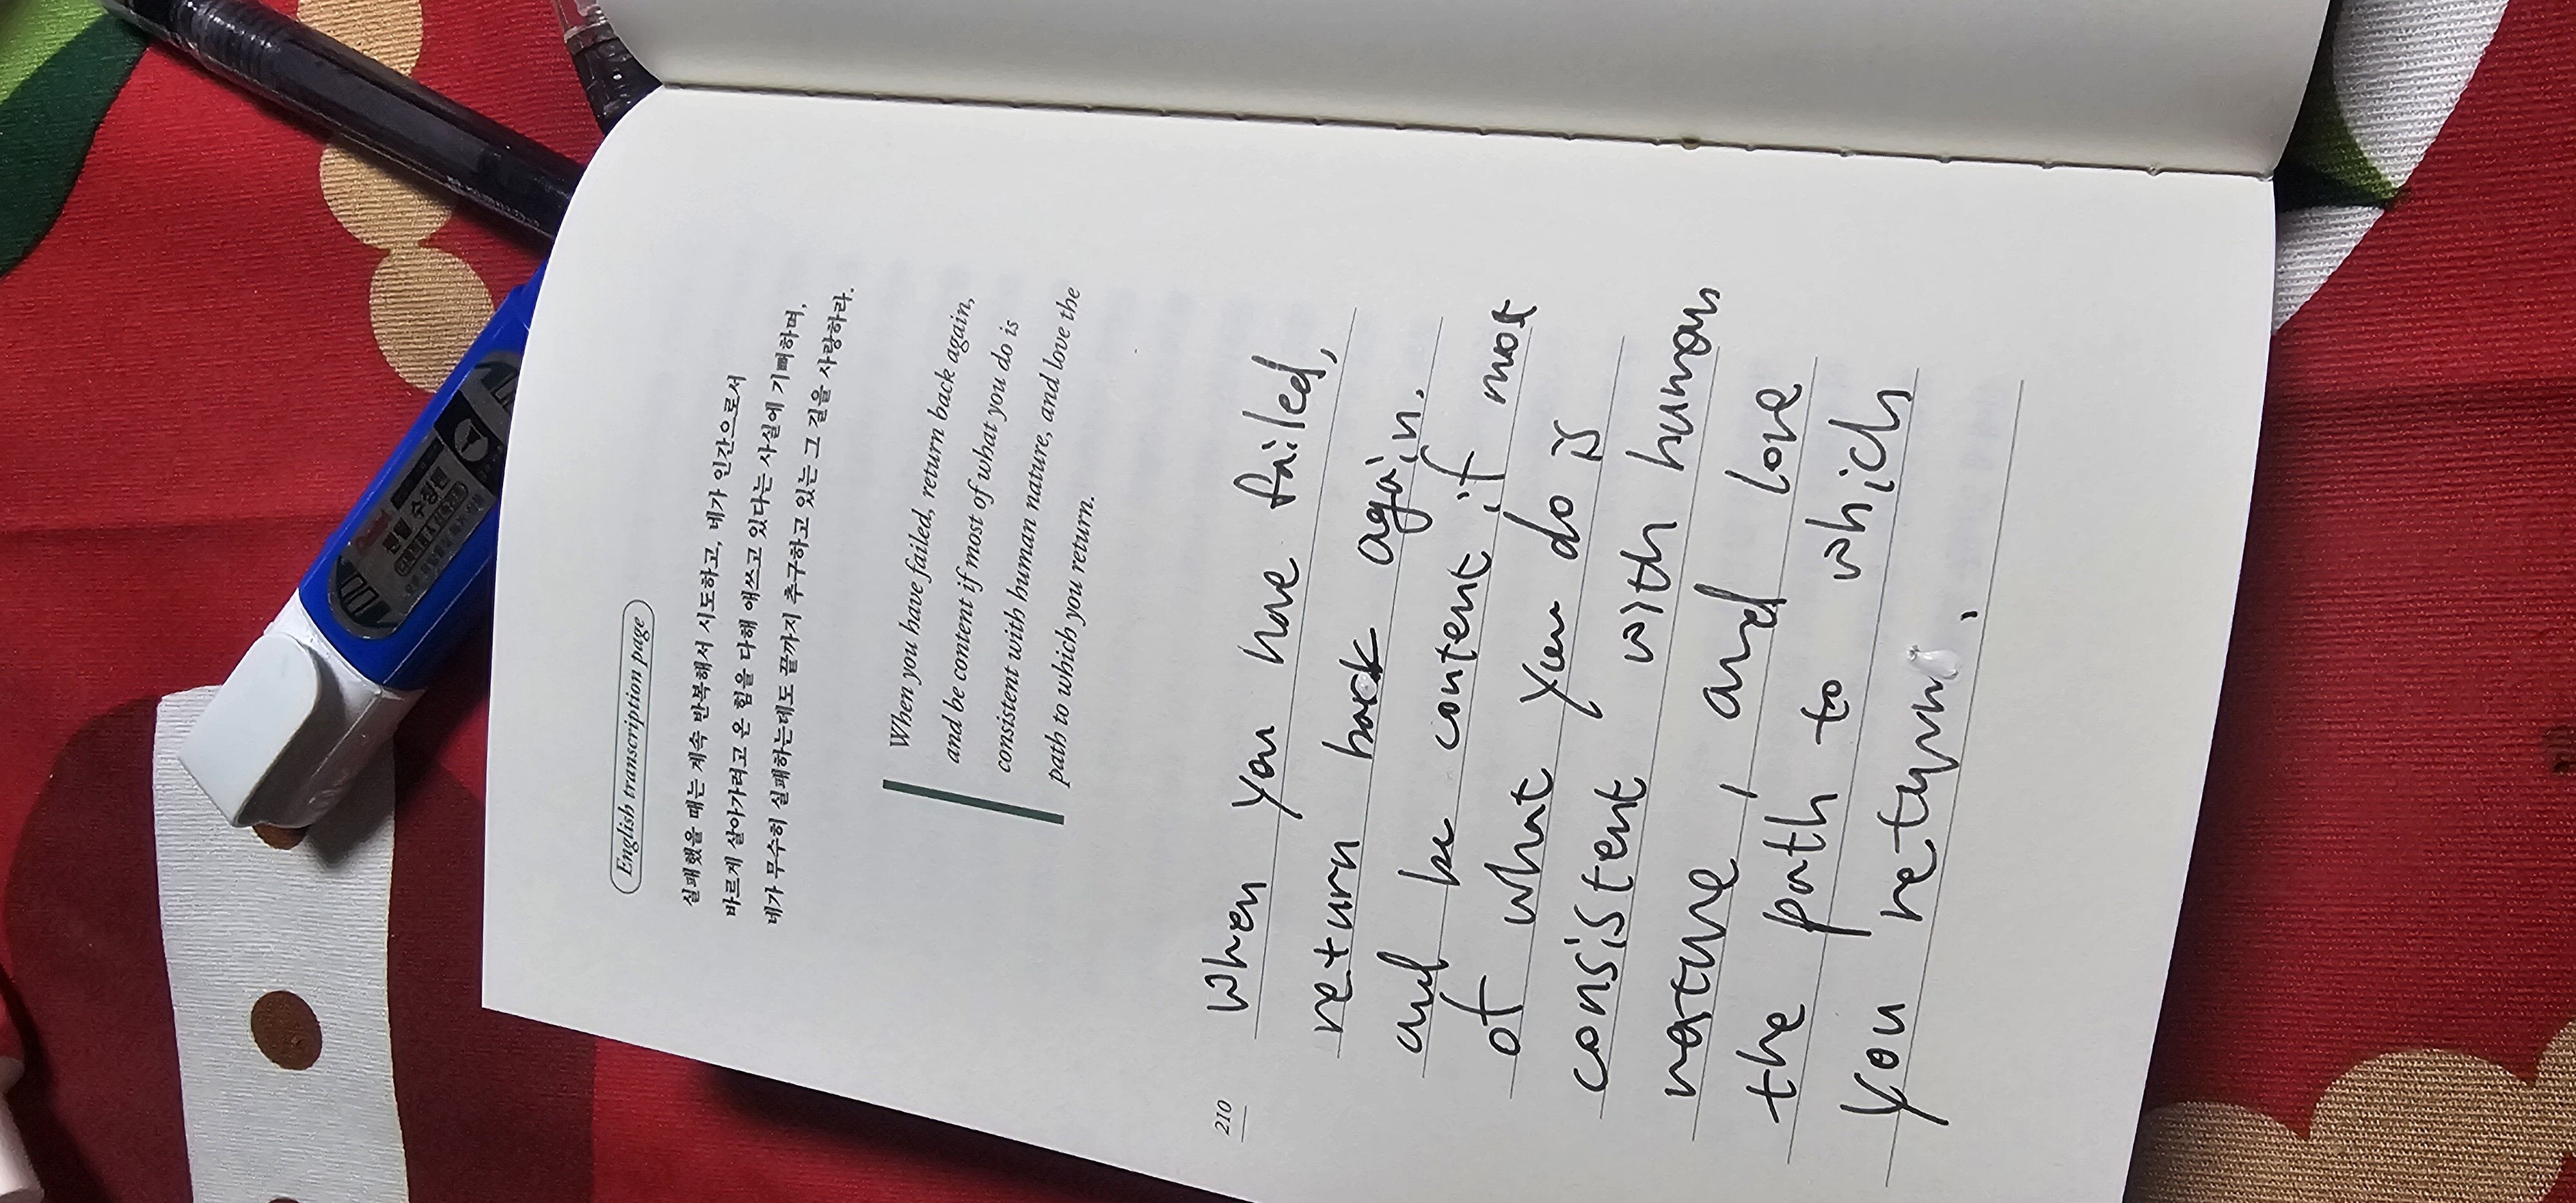 English transcription page
실패했을 때는 계속 반복해서 시도하고, 네가 인간으로서
바르게 살아가려고 온 힘을 다해 애쓰고 있다는 사실에 기뻐하며,
네가 무수히 실패하는데도 끝까지 추구하고 있는 그 길을 사랑하라.
When you have failed, return back again,
and be content if most of what you do is
consistent with human nature, and love the
path to which you return.
When you have failed,
return back again.
and be content if most
of what you do is
consistent with human
nature, and love
the path to which
you return.
210
Pentel
펜텔 수정펜